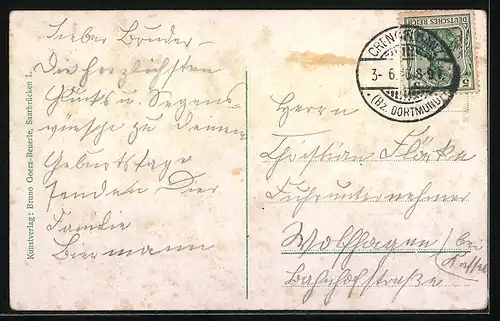 Lieber Bruder
Die herzlichsten
Glücks u. Segens
wünsche zu Deinem
Geburtstage
senden Dir
Familie
Biermann
Kunstverlag: Bruno Goerz-Beuerle, Saarbrücken 1.
DEUTSCHES REICH
5
3- 6. 8-9
(Bz. DORTMUND)
Herrn
Christian Flörke
Fuhrunternehmer
Wolfhagen / bei
Kassel
Bahnhofstraße